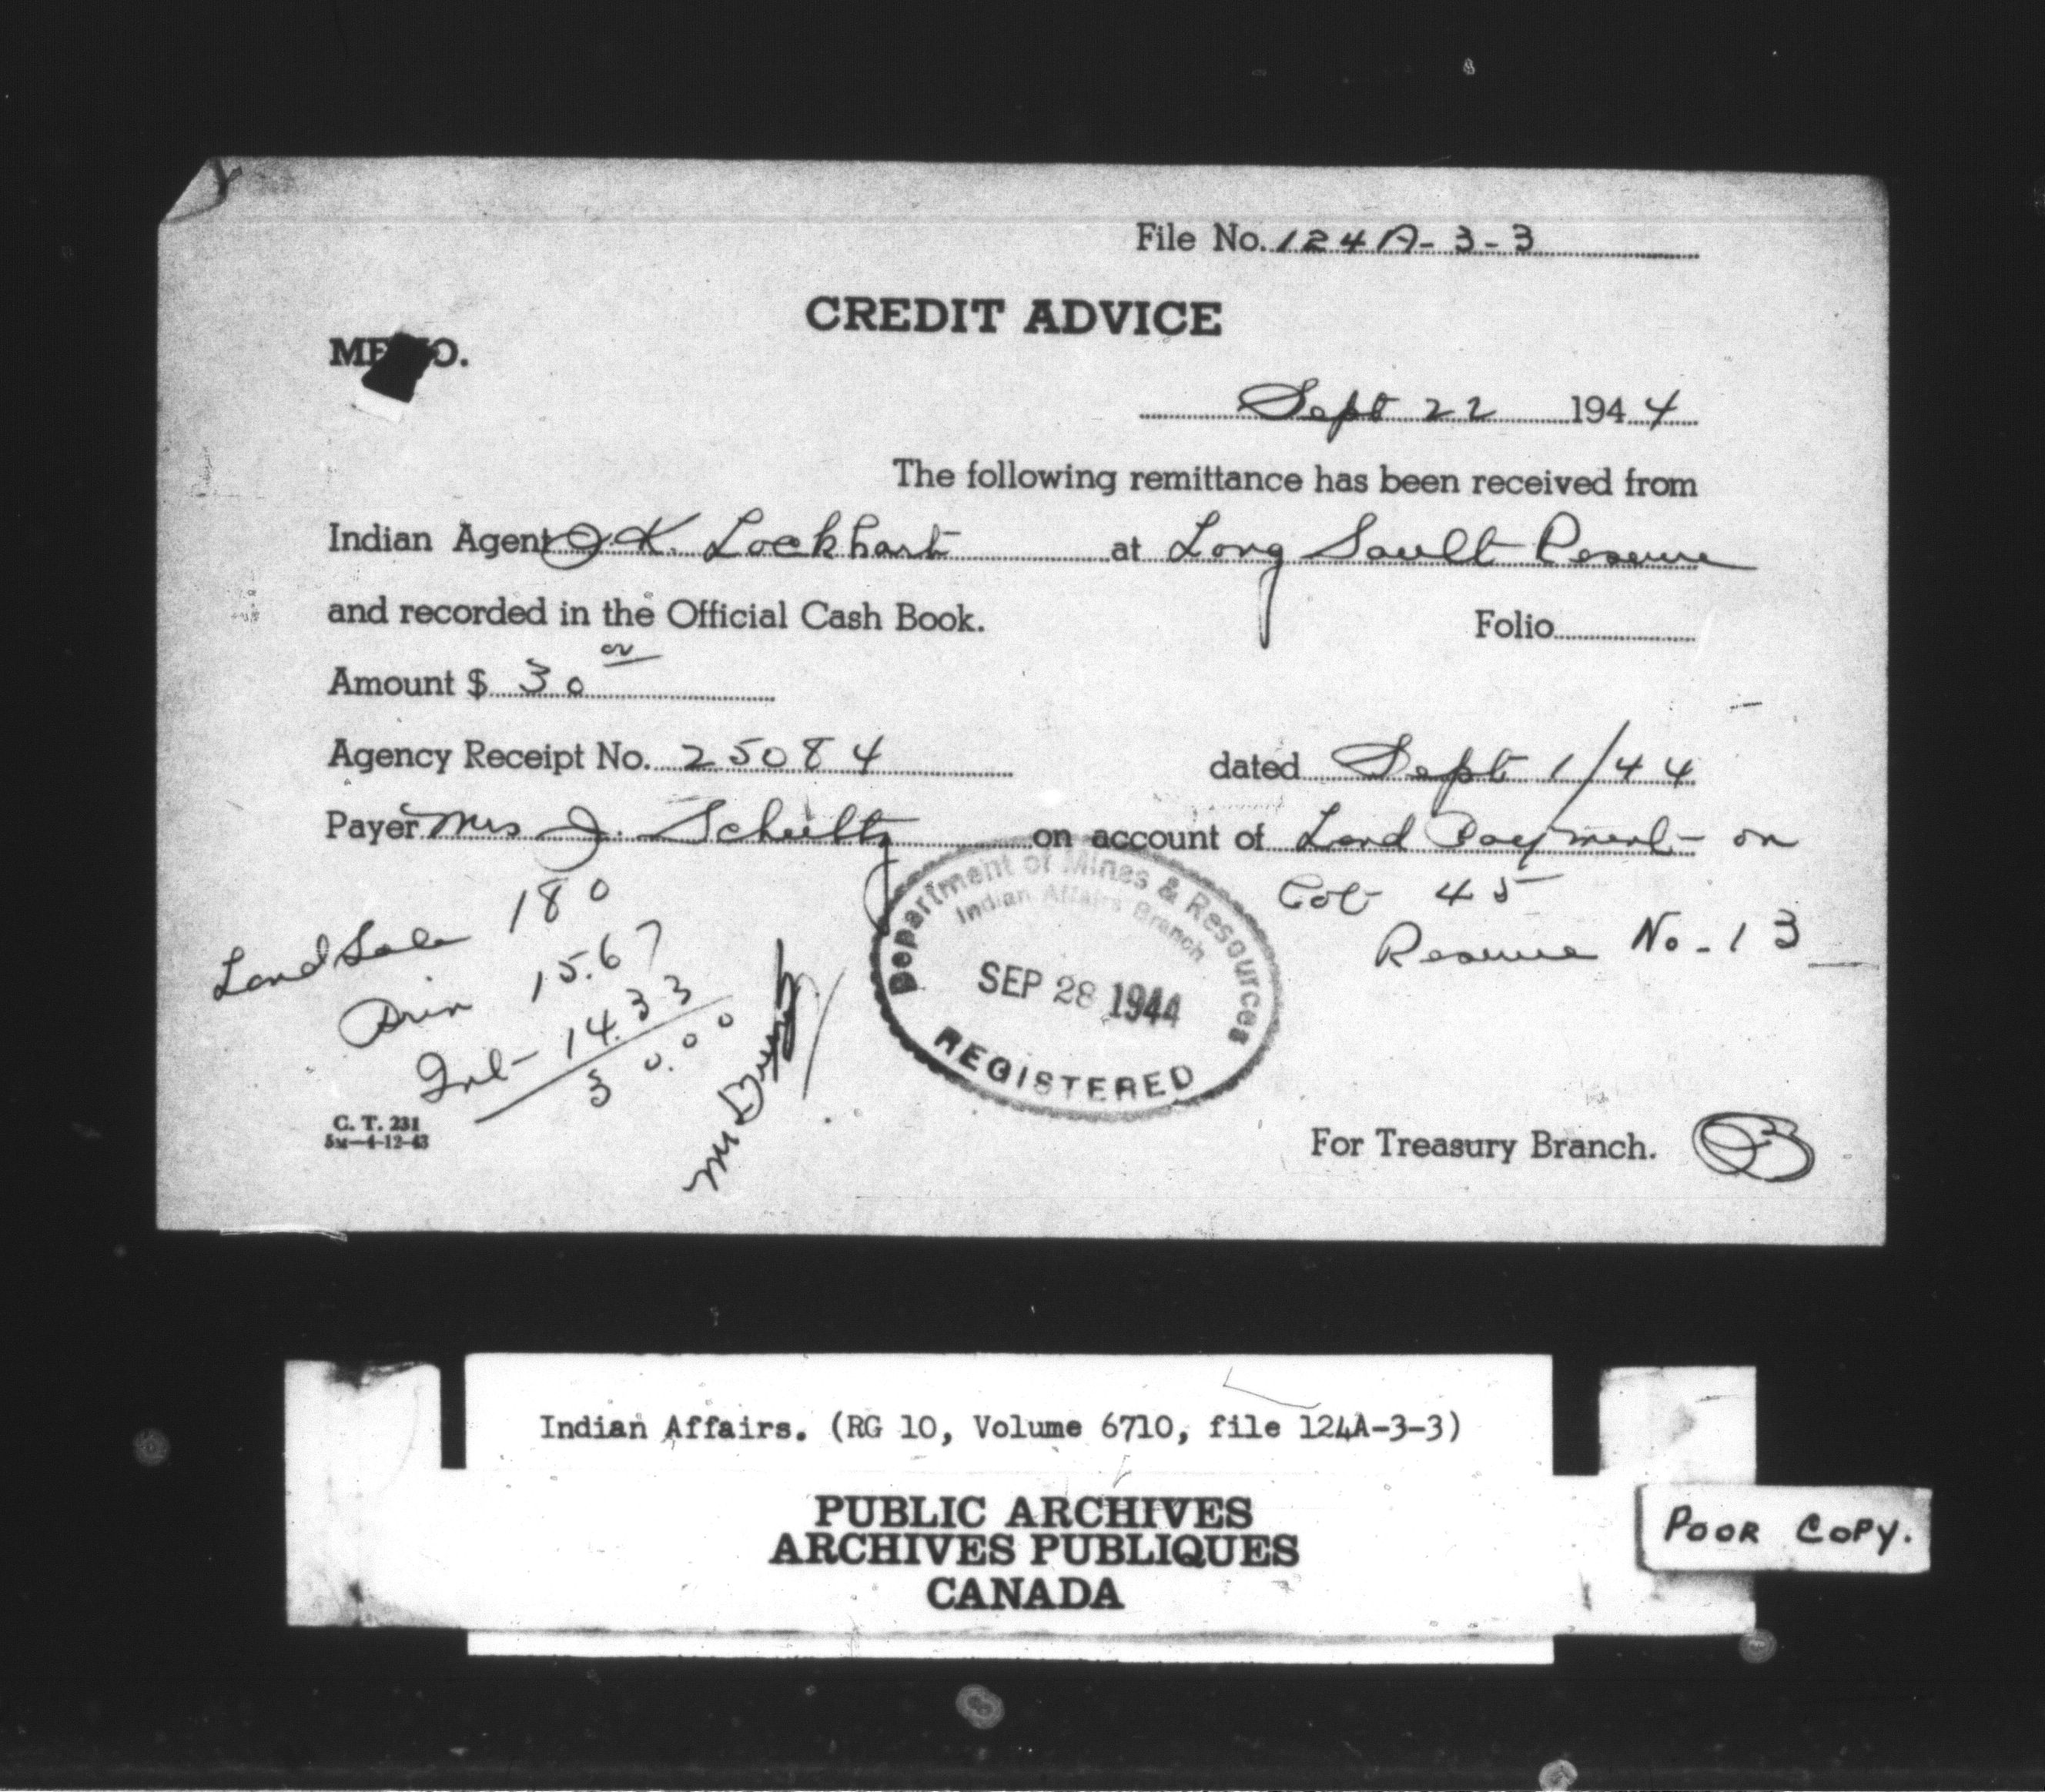 File No. 124A-3-3
CREDIT ADVICE
MEMO.
Sept 22 1944
The following remittance has been received from
Indian Agent J.K. Lockhart at Long Sault Reserve
and recorded in the Official Cash Book. Folio
Amount $ 30 00
Agency Receipt No. 25084 dated Sept 1/44
Payer Mrs J. Schultz on account of Land Payment on
Lot 45
Reserve No. 13
Land Sale 180
Prin 15.67
Int 14.33
30.00
Mr
Department of Mines & Resources
Indian Affairs Branch
SEP 28 1944
REGISTERED
C. T. 231
5M—4-12-43
For Treasury Branch.
Indian Affairs. (RG 10, Volume 6710, file 124A-3-3)
PUBLIC ARCHIVES
ARCHIVES PUBLIQUES
CANADA
POOR COPY.